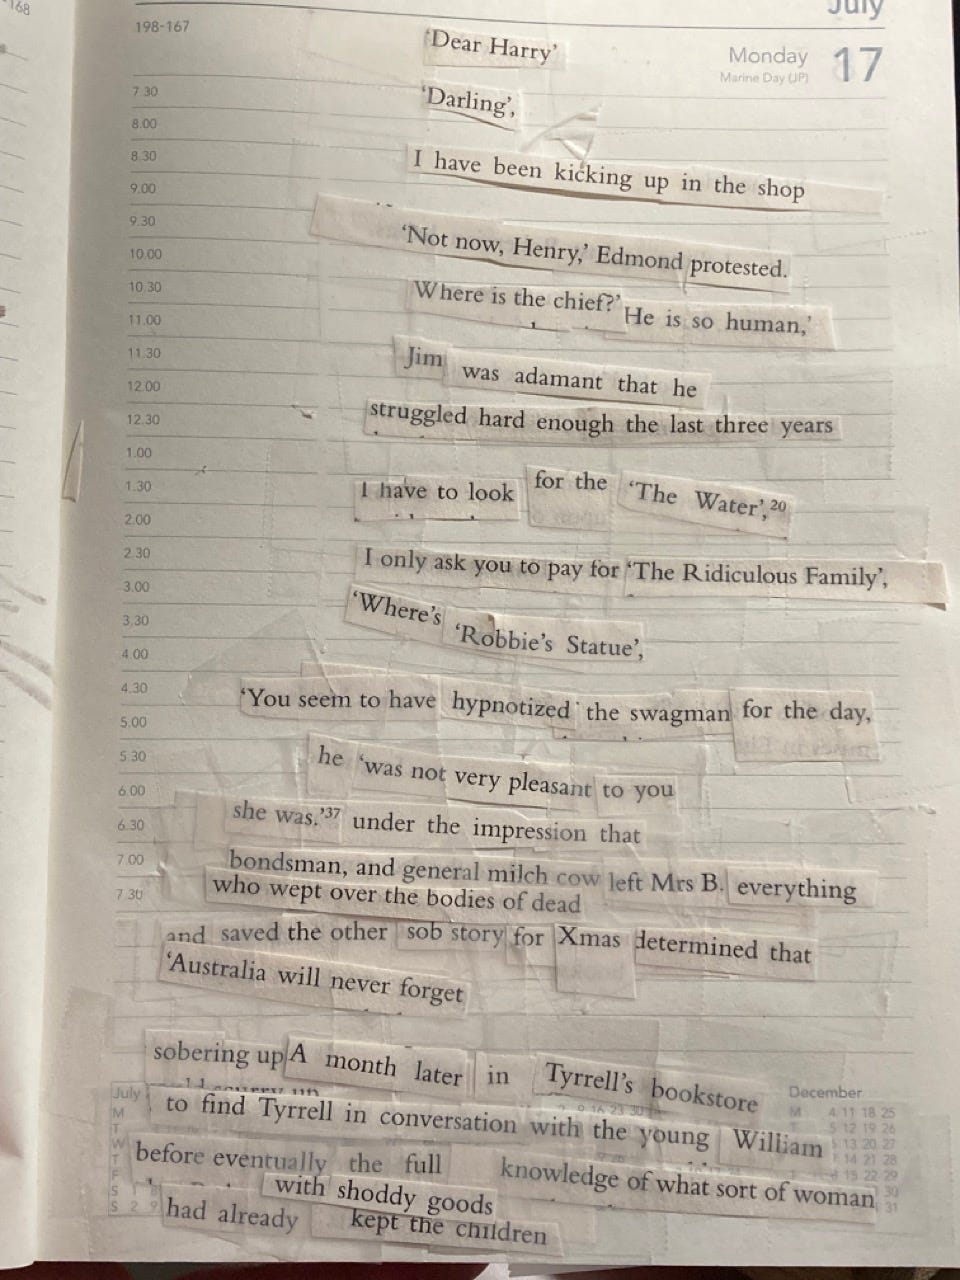 -168
198-167
July
Monday 17
Marine Day (JP)
'Dear Harry'
7.30
'Darling',
8.00
8.30
I have been kicking up in the shop
9.00
9.30
'Not now, Henry,' Edmond protested.
10.00
10.30
Where is the chief?' He is so human,'
11.00
11.30
Jim was adamant that he
12.00
12.30
struggled hard enough the last three years
1.00
1.30
I have to look for the 'The Water',20
2.00
2.30
I only ask you to pay for 'The Ridiculous Family',
3.00
'Where's 'Robbie's Statue',
3.30
4.00
4.30
'You seem to have hypnotized the swagman for the day,
5.00
5.30
he 'was not very pleasant to you
6.00
she was.'37 under the impression that
6.30
7.00
bondsman, and general milch cow left Mrs B. everything
7.30
who wept over the bodies of dead
and saved the other sob story for Xmas determined that
'Australia will never forget
sobering up A month later in Tyrrell's bookstore
July
December
to find Tyrrell in conversation with the young William
M 4 11 18 25
S 12 19 26
S 13 20 27
14 21 28
15 22 29
30
31
M
T
W
T
F
S
S 2 9
before eventually the full knowledge of what sort of woman
with shoddy goods
had already kept the children